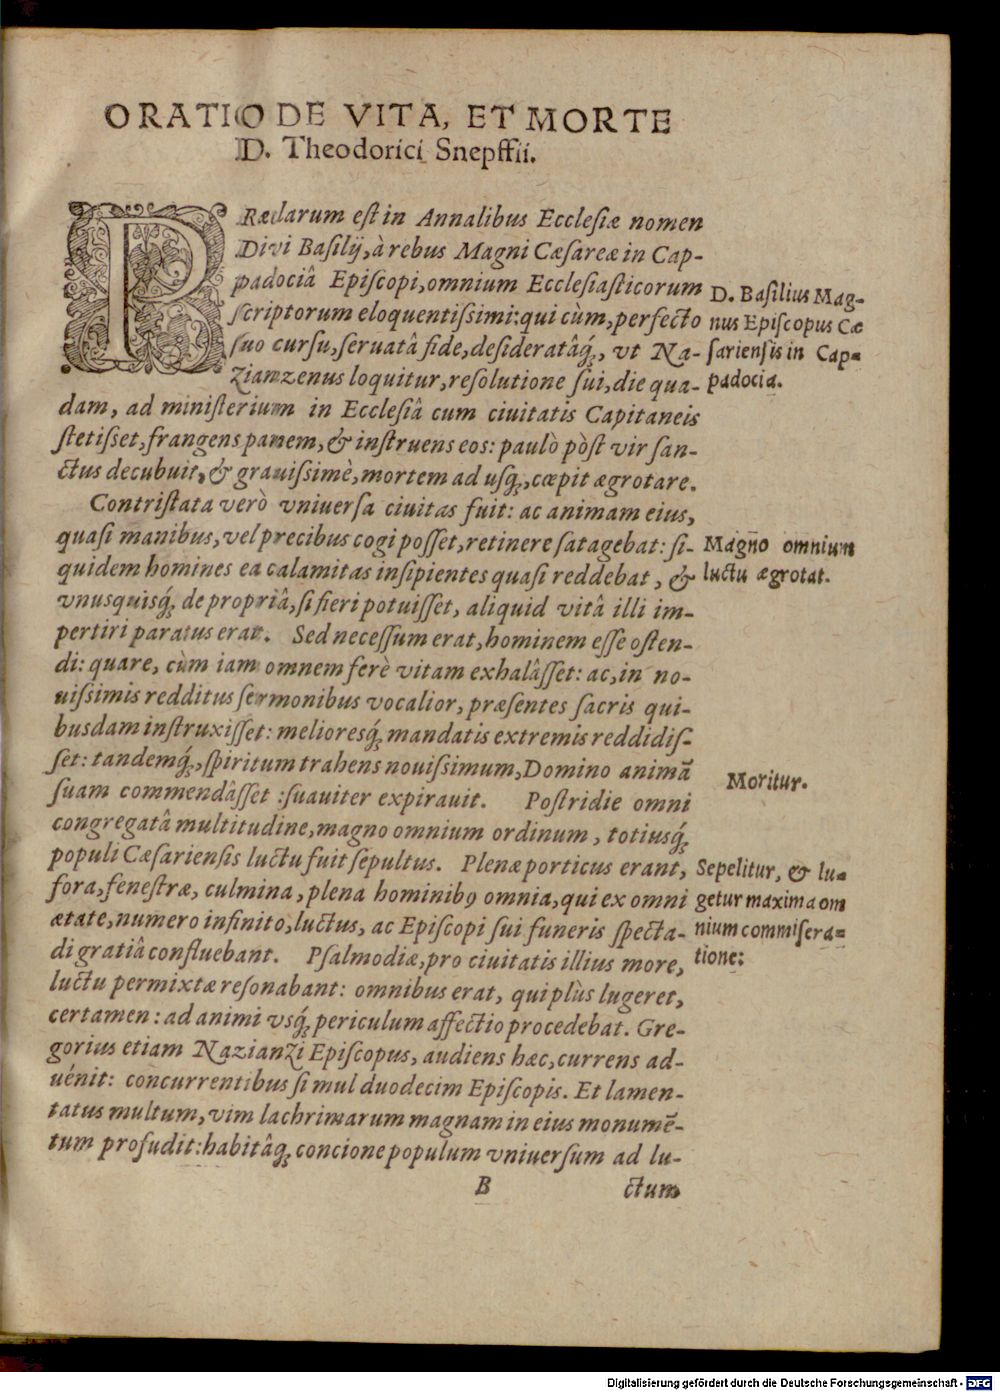 ORATIO DE VITA, ET MORTE
D. Theodorici Snepffii.
PRæclarum est in Annalibus Ecclesiæ nomen
Divi Basilij, à rebus Magni Cæsareæ in Cap-
padociâ Episcopi, omnium Ecclesiasticorum
scriptorum eloquentissimi: qui cùm, perfecto
suo cursu, seruatâ fide, desideratâq́;, vt Na-
zianzenus loquitur, resolutione sui, die qua-
dam, ad ministerium in Ecclesiâ cum ciuitatis Capitaneis
stetisset, frangens panem, & instruens eos: paulò pòst vir san-
ctus decubuit, & grauissimè, mortem ad usq́;, cœpit ægrotare.
Contristata verò vniuersa ciuitas fuit: ac animam eius,
quasi manibus, vel precibus cogi posset, retinere satagebat: si-
quidem homines ea calamitas insipientes quasi reddebat, &
vnusquisq́; de propriâ, si fieri potuisset, aliquid vitâ illi im-
pertiri paratus erat. Sed necessum erat, hominem esse osten-
di: quare, cùm iam omnem ferè vitam exhalâsset: ac, in no-
uissimis redditus sermonibus vocalior, præsentes sacris qui-
busdam instruxisset: melioresq́; mandatis extremis reddidis-
set: tandemq́;, spiritum trahens nouissimum, Domino animã
suam commendâsset: suauiter expirauit. Postridie omni
congregatâ multitudine, magno omnium ordinum, totiusq́;
populi Cæsariensis luctu fuit sepultus. Plenæ porticus erant,
fora, fenestræ, culmina, plena hominibꝰ omnia, qui ex omni
ætate, numero infinito, luctus, ac Episcopi sui funeris specta-
di gratiâ confluebant. Psalmodiæ, pro ciuitatis illius more,
luctu permixtæ resonabant: omnibus erat, qui plùs lugeret,
certamen: ad animi vsq́; periculum affectio procedebat. Gre-
gorius etiam Nazianzi Episcopus, audiens hæc, currens ad-
uénit: concurrentibus simul duodecim Episcopis. Et lamen-
tatus multum, vim lachrimarum magnam in eius monumẽ-
tum profudit: habitâq́; concione populum vniuersum ad lu-
B ctum
D. Basilius Mag-
nus Episcopus Cæ
sariensis in Cap-
padocia.
Magno omnium
luctu ægrotat.
Moritur.
Sepelitur, & lu-
getur maxima om
nium commisera-
tione:
Digitalisierung gefördert durch die Deutsche Forschungsgemeinschaft - DFG